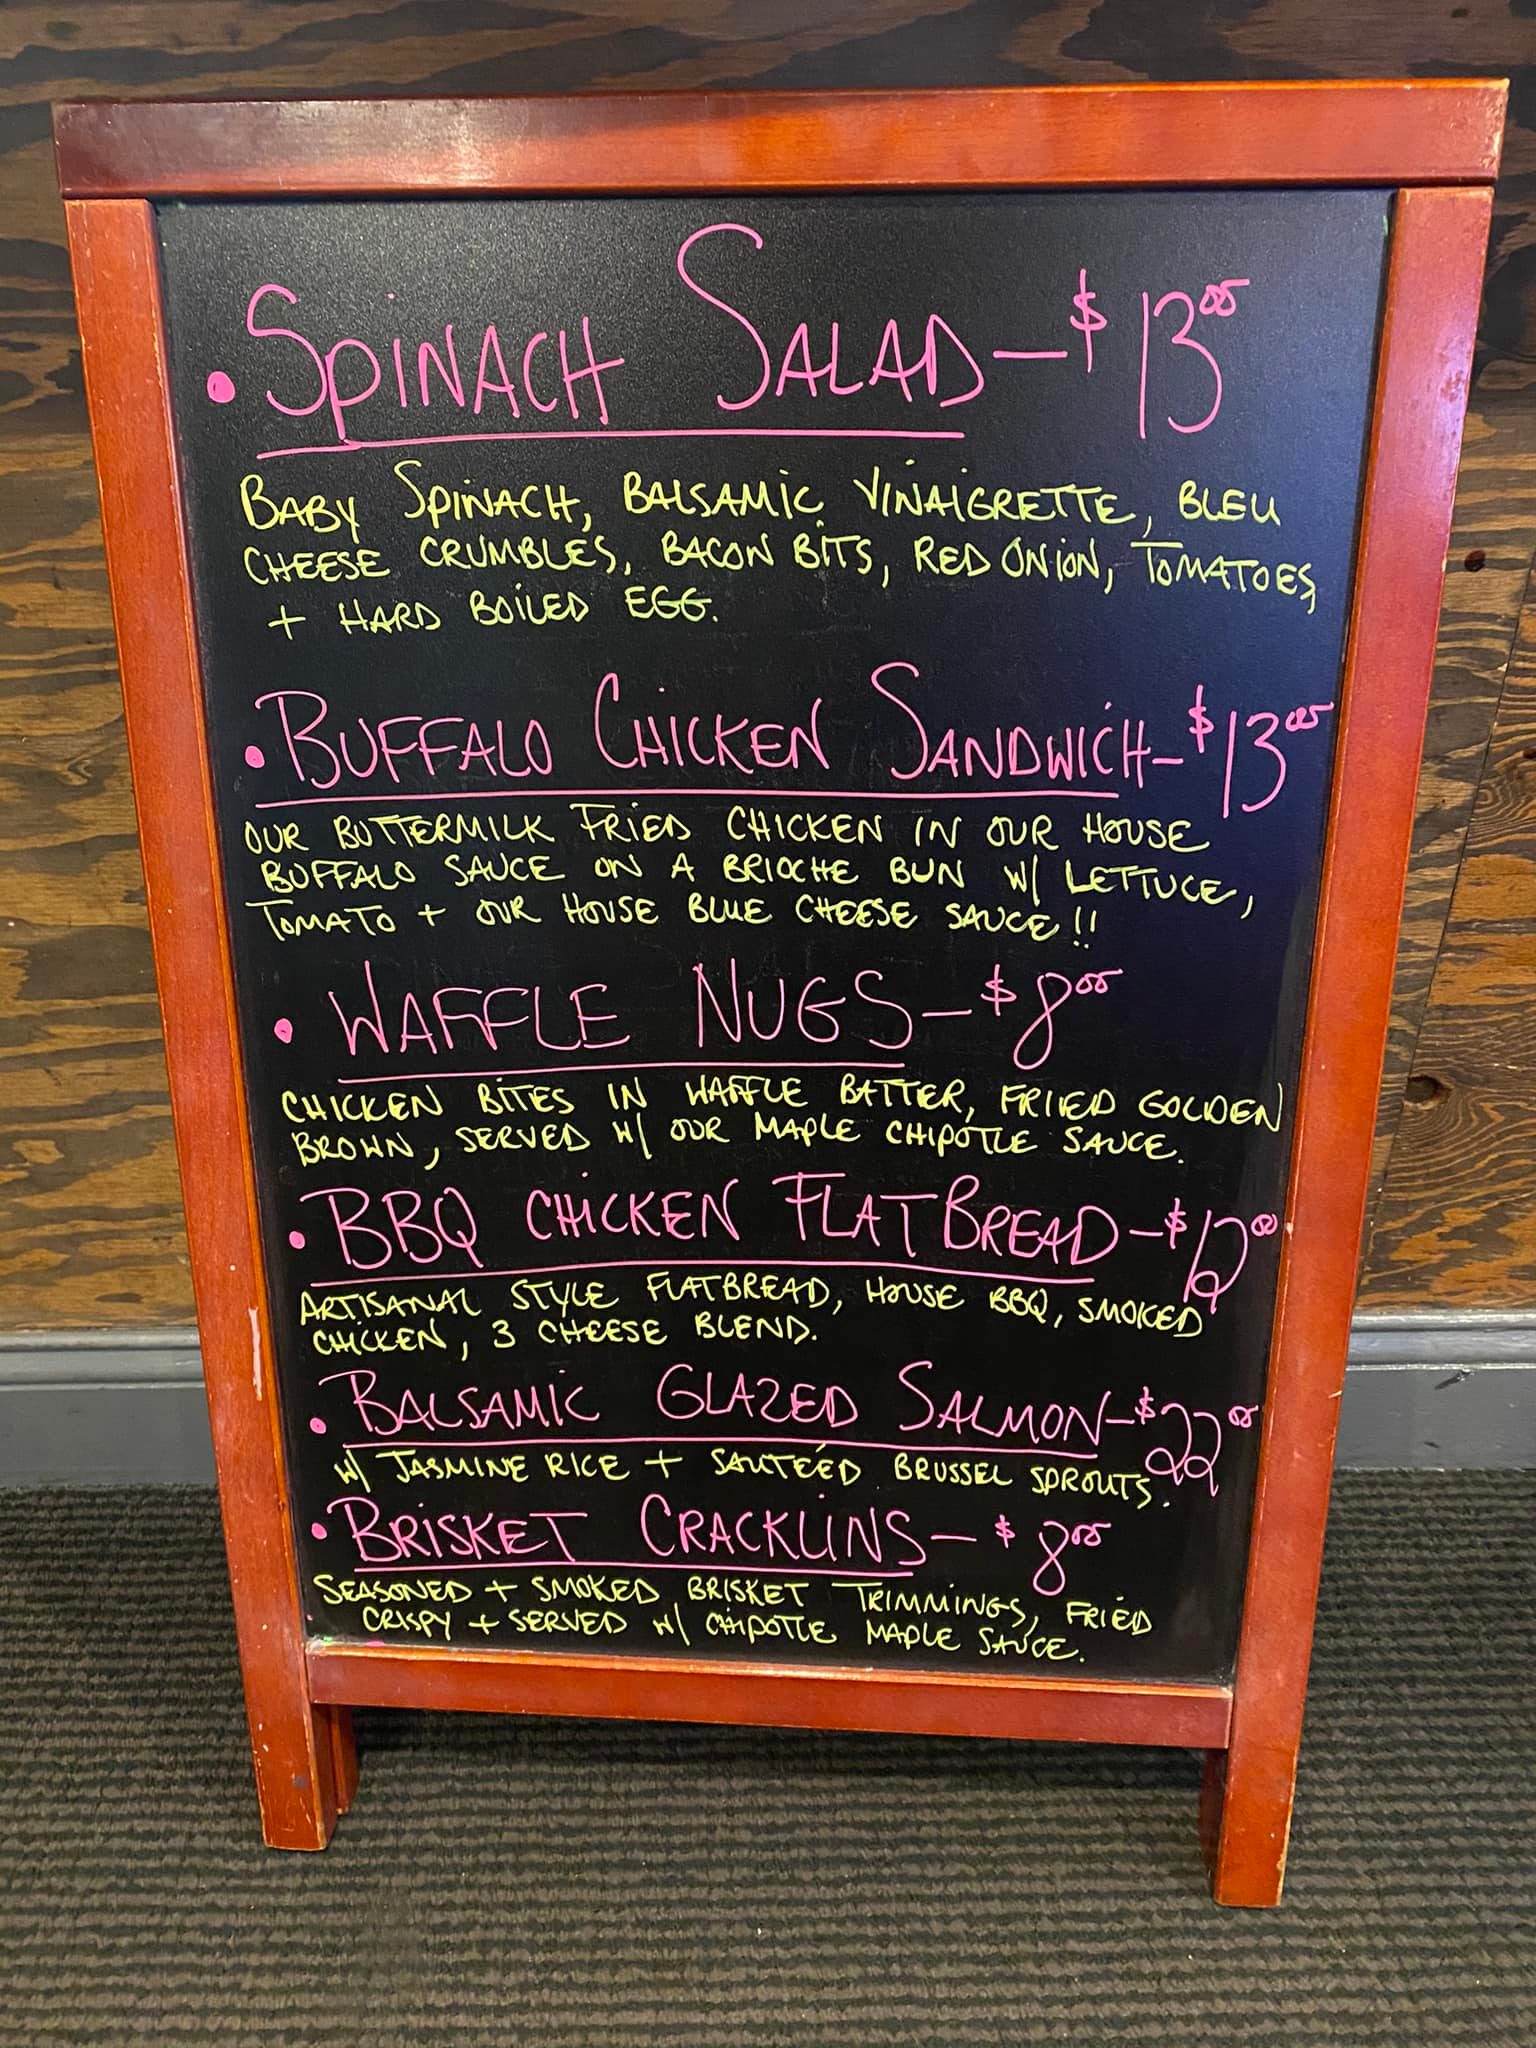 • SPINACH SALAD - $13.00
BABY SPINACH, BALSAMIC VINAIGRETTE, BLEU
CHEESE CRUMBLES, BACON BITS, RED ONION, TOMATOES,
+ HARD BOILED EGG.
• BUFFALO CHICKEN SANDWICH - $13.00
OUR BUTTERMILK FRIED CHICKEN IN OUR HOUSE
BUFFALO SAUCE ON A BRIOCHE BUN W/ LETTUCE,
TOMATO + OUR HOUSE BLUE CHEESE SAUCE!!
• WAFFLE NUGS - $8.00
CHICKEN BITES IN WAFFLE BATTER, FRIED GOLDEN
BROWN, SERVED W/ OUR MAPLE CHIPOTLE SAUCE.
• BBQ CHICKEN FLATBREAD - $12.00
ARTISANAL STYLE FLATBREAD, HOUSE BBQ, SMOKED
CHICKEN, 3 CHEESE BLEND.
• BALSAMIC GLAZED SALMON - $22.00
W/ JASMINE RICE + SAUTÉED BRUSSEL SPROUTS.
• BRISKET CRACKLINS - $8.00
SEASONED + SMOKED BRISKET TRIMMINGS, FRIED
CRISPY + SERVED W/ CHIPOTLE MAPLE SAUCE.